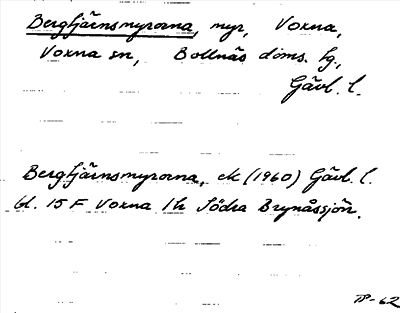 Bergtjärnsmyrorna, myr, Voxna,
Voxna sn, Bollnäs doms. fg.,
Gävl. l.
Bergtjärnsmyrorna, ek (1960) Gävl. l.
bl. 15 F Voxna 1h Södra Brynåssjön.
TP-62